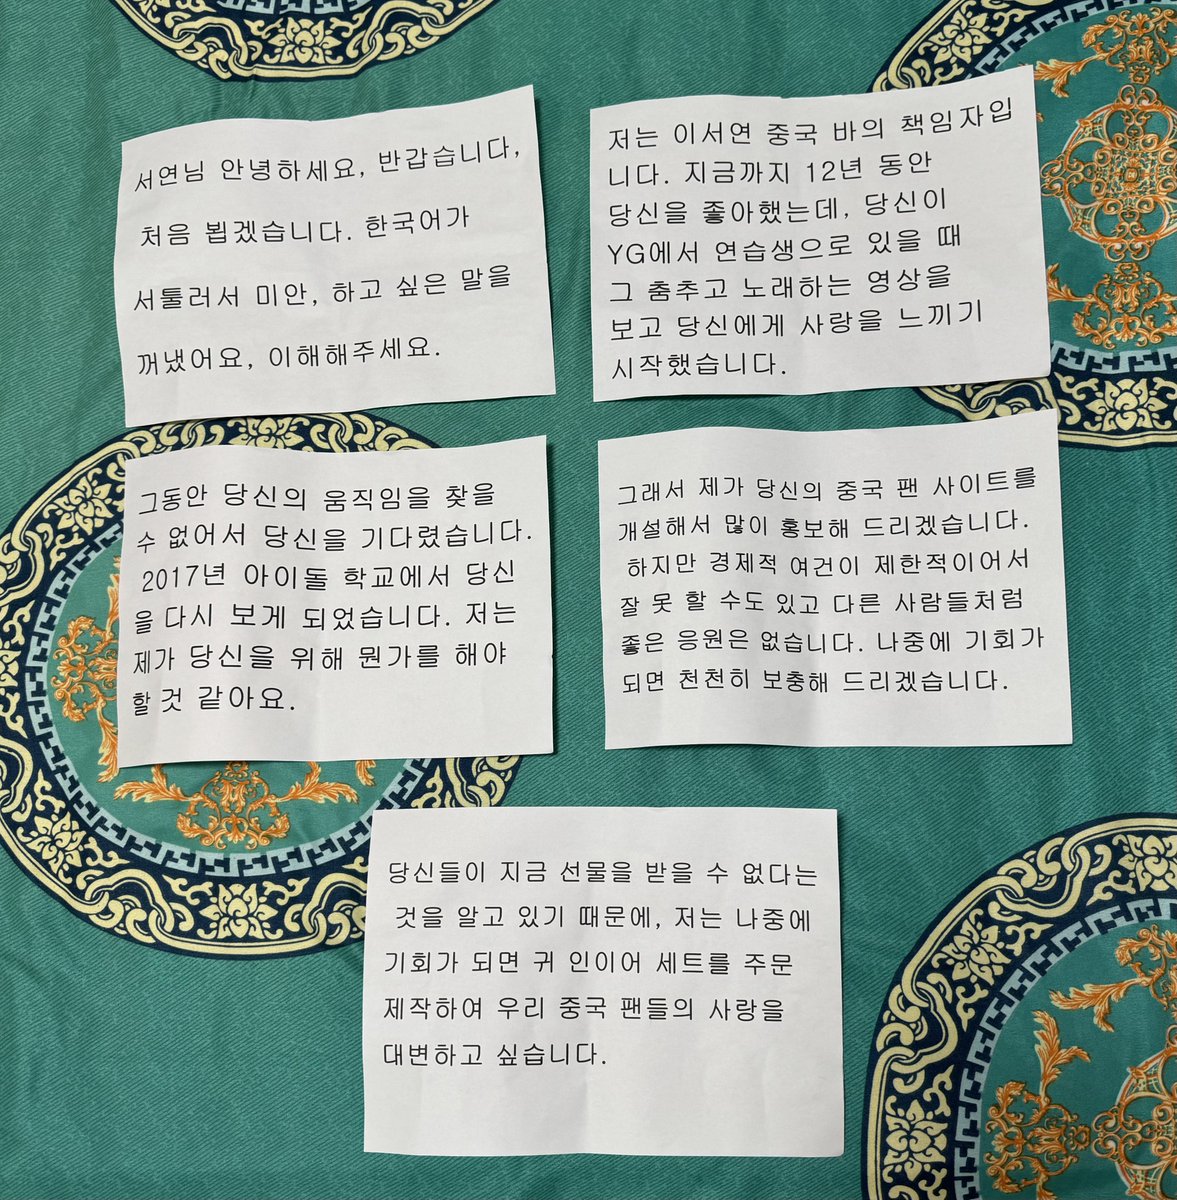 서연님 안녕하세요, 반갑습니다,
처음 뵙겠습니다. 한국어가
서툴러서 미안, 하고 싶은 말을
꺼냈어요, 이해해주세요.
저는 이서연 중국 바의 책임자입
니다. 지금까지 12년 동안
당신을 좋아했는데, 당신이
YG에서 연습생으로 있을 때
그 춤추고 노래하는 영상을
보고 당신에게 사랑을 느끼기
시작했습니다.
그동안 당신의 움직임을 찾을
수 없어서 당신을 기다렸습니다.
2017년 아이돌 학교에서 당신
을 다시 보게 되었습니다. 저는
제가 당신을 위해 뭔가를 해야
할 것 같아요.
그래서 제가 당신의 중국 팬 사이트를
개설해서 많이 홍보해 드리겠습니다.
하지만 경제적 여건이 제한적이어서
잘 못 할 수도 있고 다른 사람들처럼
좋은 응원은 없습니다. 나중에 기회가
되면 천천히 보충해 드리겠습니다.
당신들이 지금 선물을 받을 수 없다는
것을 알고 있기 때문에, 저는 나중에
기회가 되면 귀 인이어 세트를 주문
제작하여 우리 중국 팬들의 사랑을
대변하고 싶습니다.